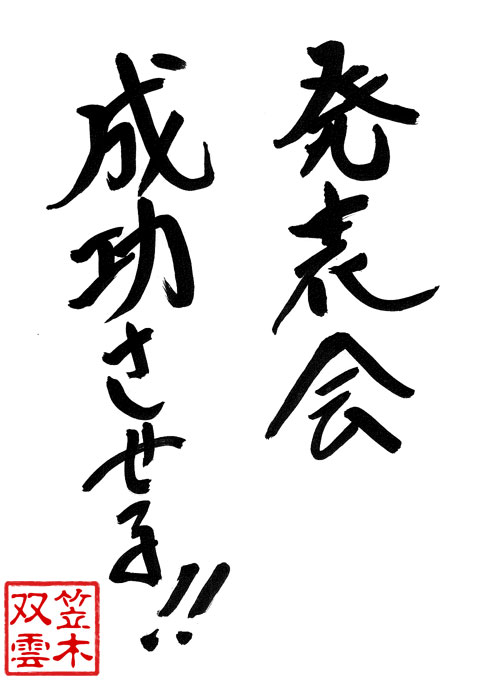 発表会
成功させる!!
笠木
双雲